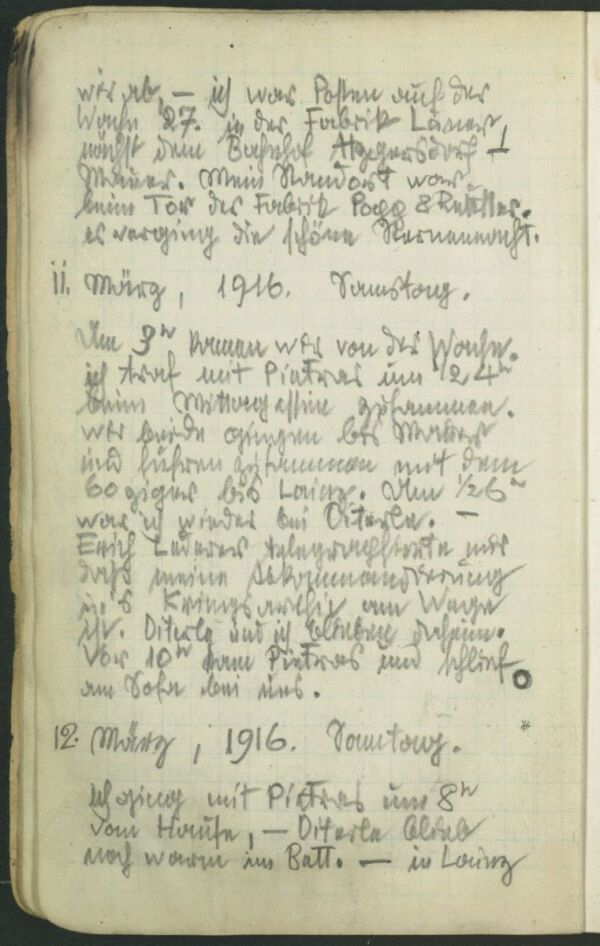 wir ab, — ich war Posten auf der
Wache 27. in der Fabrik
nächst dem Bahnhof Atzgersdorf –
Mauer. Mein Standort war
beim Tor der Fabrik Popp &
es verging die schöne Sternennacht.
11. März, 1916. Samstag.
Um 3ʰ kamen wir von der Wache.
ich traf mit Pietras um
beim Mittagessen zusammen.
wir beide gingen bis Mauer
und fuhren zusammen mit dem
60ziger bis Lainz. Um ½6ʰ
war ich wieder bei Diterle. —
Erich Lederer telegraphierte mir
daß meine Abkommandierung
in's am Wege
ist. Diterle und ich blieben daheim.
Vor 10ʰ kam Pietras und schlief
am Sofa bei uns.
12. März, 1916. Sonntag.
ich ging mit Pietras um 8ʰ
vom Hause, — Diterle blieb
noch warm im Bett. — in Lainz